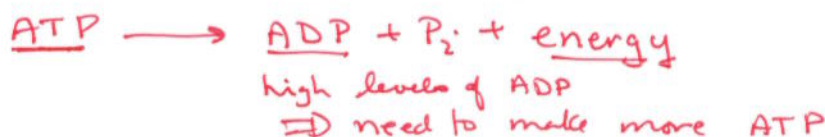 ATP ⟶ ADP + Pi + energy
high levels of ADP
⇒ need to make more ATP